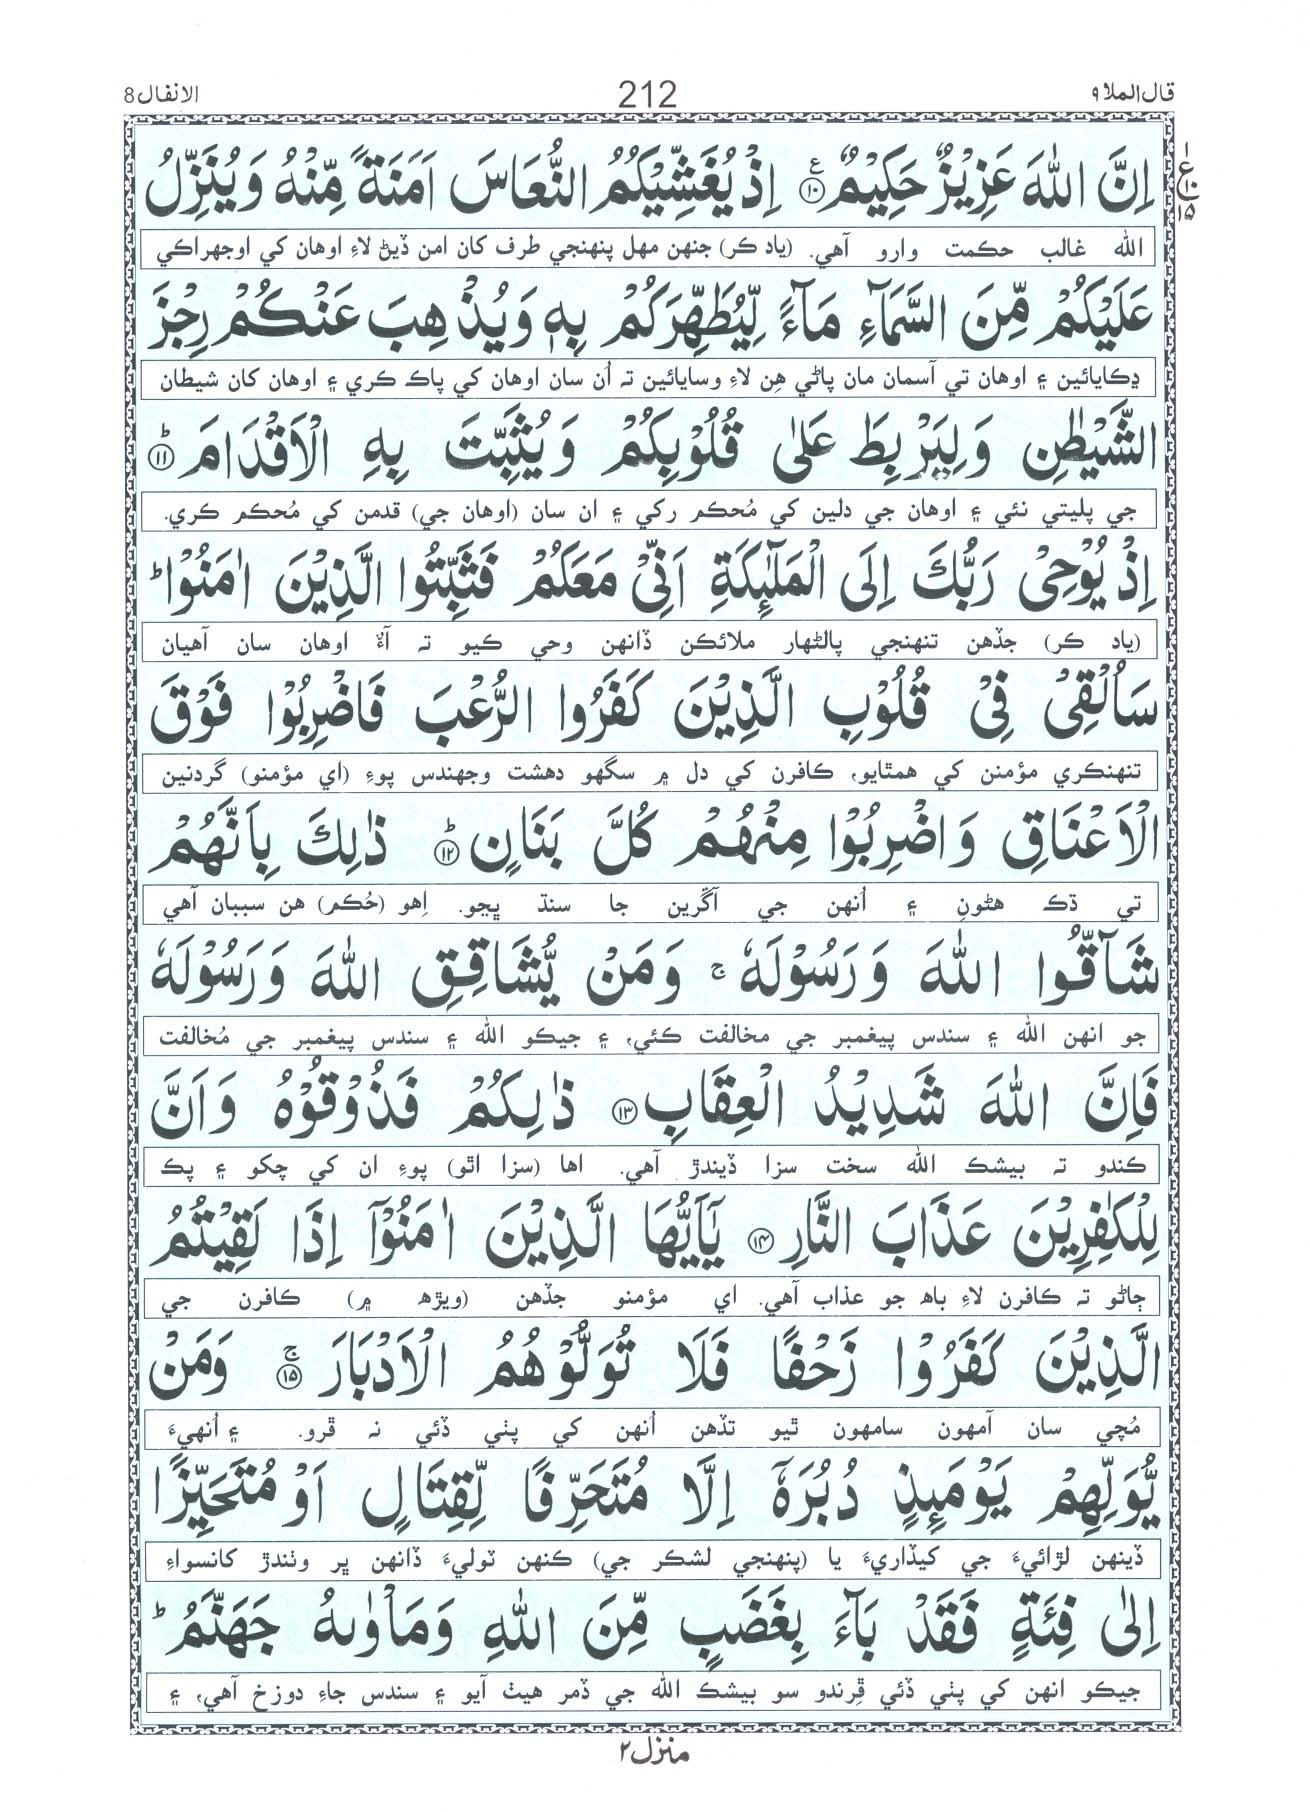 قال الملا۹ 212 الانفال8
اِنَّ اللّٰهَ عَزِيْزٌ حَكِيْمٌ ۧ۝۱۰ اِذْ يُغَشِّيْكُمُ النُّعَاسَ اَمَنَةً مِّنْهُ وَيُنَزِّلُ
ع ۱ ۱۰ ۱۵
الله غالب حڪمت وارو آهي. (ياد ڪر) جنهن مهل پنهنجي طرف کان امن ڏيڻ لاءِ اوهان کي اوجهراڪي
عَلَيْكُمْ مِّنَ السَّمَآءِ مَآءً لِّيُطَهِّرَكُمْ بِهٖ وَيُذْهِبَ عَنْكُمْ رِجْزَ
ڍڪايائين ۽ اوهان تي آسمان مان پاڻي هِن لاءِ وسايائين ته اُن سان اوهان کي پاڪ ڪري ۽ اوهان کان شيطان
الشَّيْطٰنِ وَلِيَرْبِطَ عَلٰى قُلُوْبِكُمْ وَيُثَبِّتَ بِهِ الْاَقْدَامَ ۝۱۱ؕ
جي پليتي نئي ۽ اوهان جي دلين کي مُحڪم رکي ۽ ان سان (اوهان جي) قدمن کي مُحڪم ڪري.
اِذْ يُوْحِىْ رَبُّكَ اِلَى الْمَلٰٓئِكَةِ اَنِّىْ مَعَكُمْ فَثَبِّتُوا الَّذِيْنَ اٰمَنُوْاؕ
(ياد ڪر) جڏهن تنهنجي پالڻهار ملائڪن ڏانهن وحي ڪيو ته آءٌ اوهان سان آهيان
سَاُلْقِىْ فِىْ قُلُوْبِ الَّذِيْنَ كَفَرُوا الرُّعْبَ فَاضْرِبُوْا فَوْقَ
تنهنڪري مؤمنن کي همٿايو، ڪافرن کي دل ۾ سگهو دهشت وجهندس پوءِ (اي مؤمنو) گردنين
الْاَعْنَاقِ وَاضْرِبُوْا مِنْهُمْ كُلَّ بَنَانٍ ۝۱۲ؕ ذٰلِكَ بِاَنَّهُمْ
تي ڌڪ هڻون ۽ اُنهن جي آڱرين جا سنڌ ڀڃو. اِهو (حُڪم) هن سببان آهي
شَآقُّوا اللّٰهَ وَرَسُوْلَهٗ ۚ وَمَنْ يُّشَاقِقِ اللّٰهَ وَرَسُوْلَهٗ
جو انهن الله ۽ سندس پيغمبر جي مخالفت ڪئي، ۽ جيڪو الله ۽ سندس پيغمبر جي مُخالفت
فَاِنَّ اللّٰهَ شَدِيْدُ الْعِقَابِ ۝۱۳ ذٰلِكُمْ فَذُوْقُوْهُ وَاَنَّ
ڪندو ته بيشڪ الله سخت سزا ڏيندڙ آهي. اها (سزا اٿو) پوءِ ان کي چکو ۽ پڪ
لِلْكٰفِرِيْنَ عَذَابَ النَّارِ ۝۱۴ يٰٓاَيُّهَا الَّذِيْنَ اٰمَنُوْٓا اِذَا لَقِيْتُمُ
ڄاڻو ته ڪافرن لاءِ باھ جو عذاب آهي. اي مؤمنو جڏهن (ويڙھ ۾) ڪافرن جي
الَّذِيْنَ كَفَرُوْا زَحْفًا فَلَا تُوَلُّوْهُمُ الْاَدْبَارَ ۝۱۵ۚ وَمَنْ
مُڇي سان آمهون سامهون ٿيو تڏهن اُنهن کي پٺي ڏئي نه ڦرو. ۽ اُنهيءَ
يُّوَلِّهِمْ يَوْمَئِذٍ دُبُرَهٗٓ اِلَّا مُتَحَرِّفًا لِّقِتَالٍ اَوْ مُتَحَيِّزًا
ڏينهن لڙائيءَ جي کيڏاريءَ يا (پنهنجي لشڪر جي) ڪنهن ٽوليءَ ڏانهن پر وٺندڙ کانسواءِ
اِلٰى فِئَةٍ فَقَدْ بَآءَ بِغَضَبٍ مِّنَ اللّٰهِ وَمَاْوٰىهُ جَهَنَّمُؕ
جيڪو انهن کي پٺي ڏئي ڦِرندو سو بيشڪ الله جي ڏمر هيٺ آيو ۽ سندس جاءِ دوزخ آهي، ۽
منزل۲